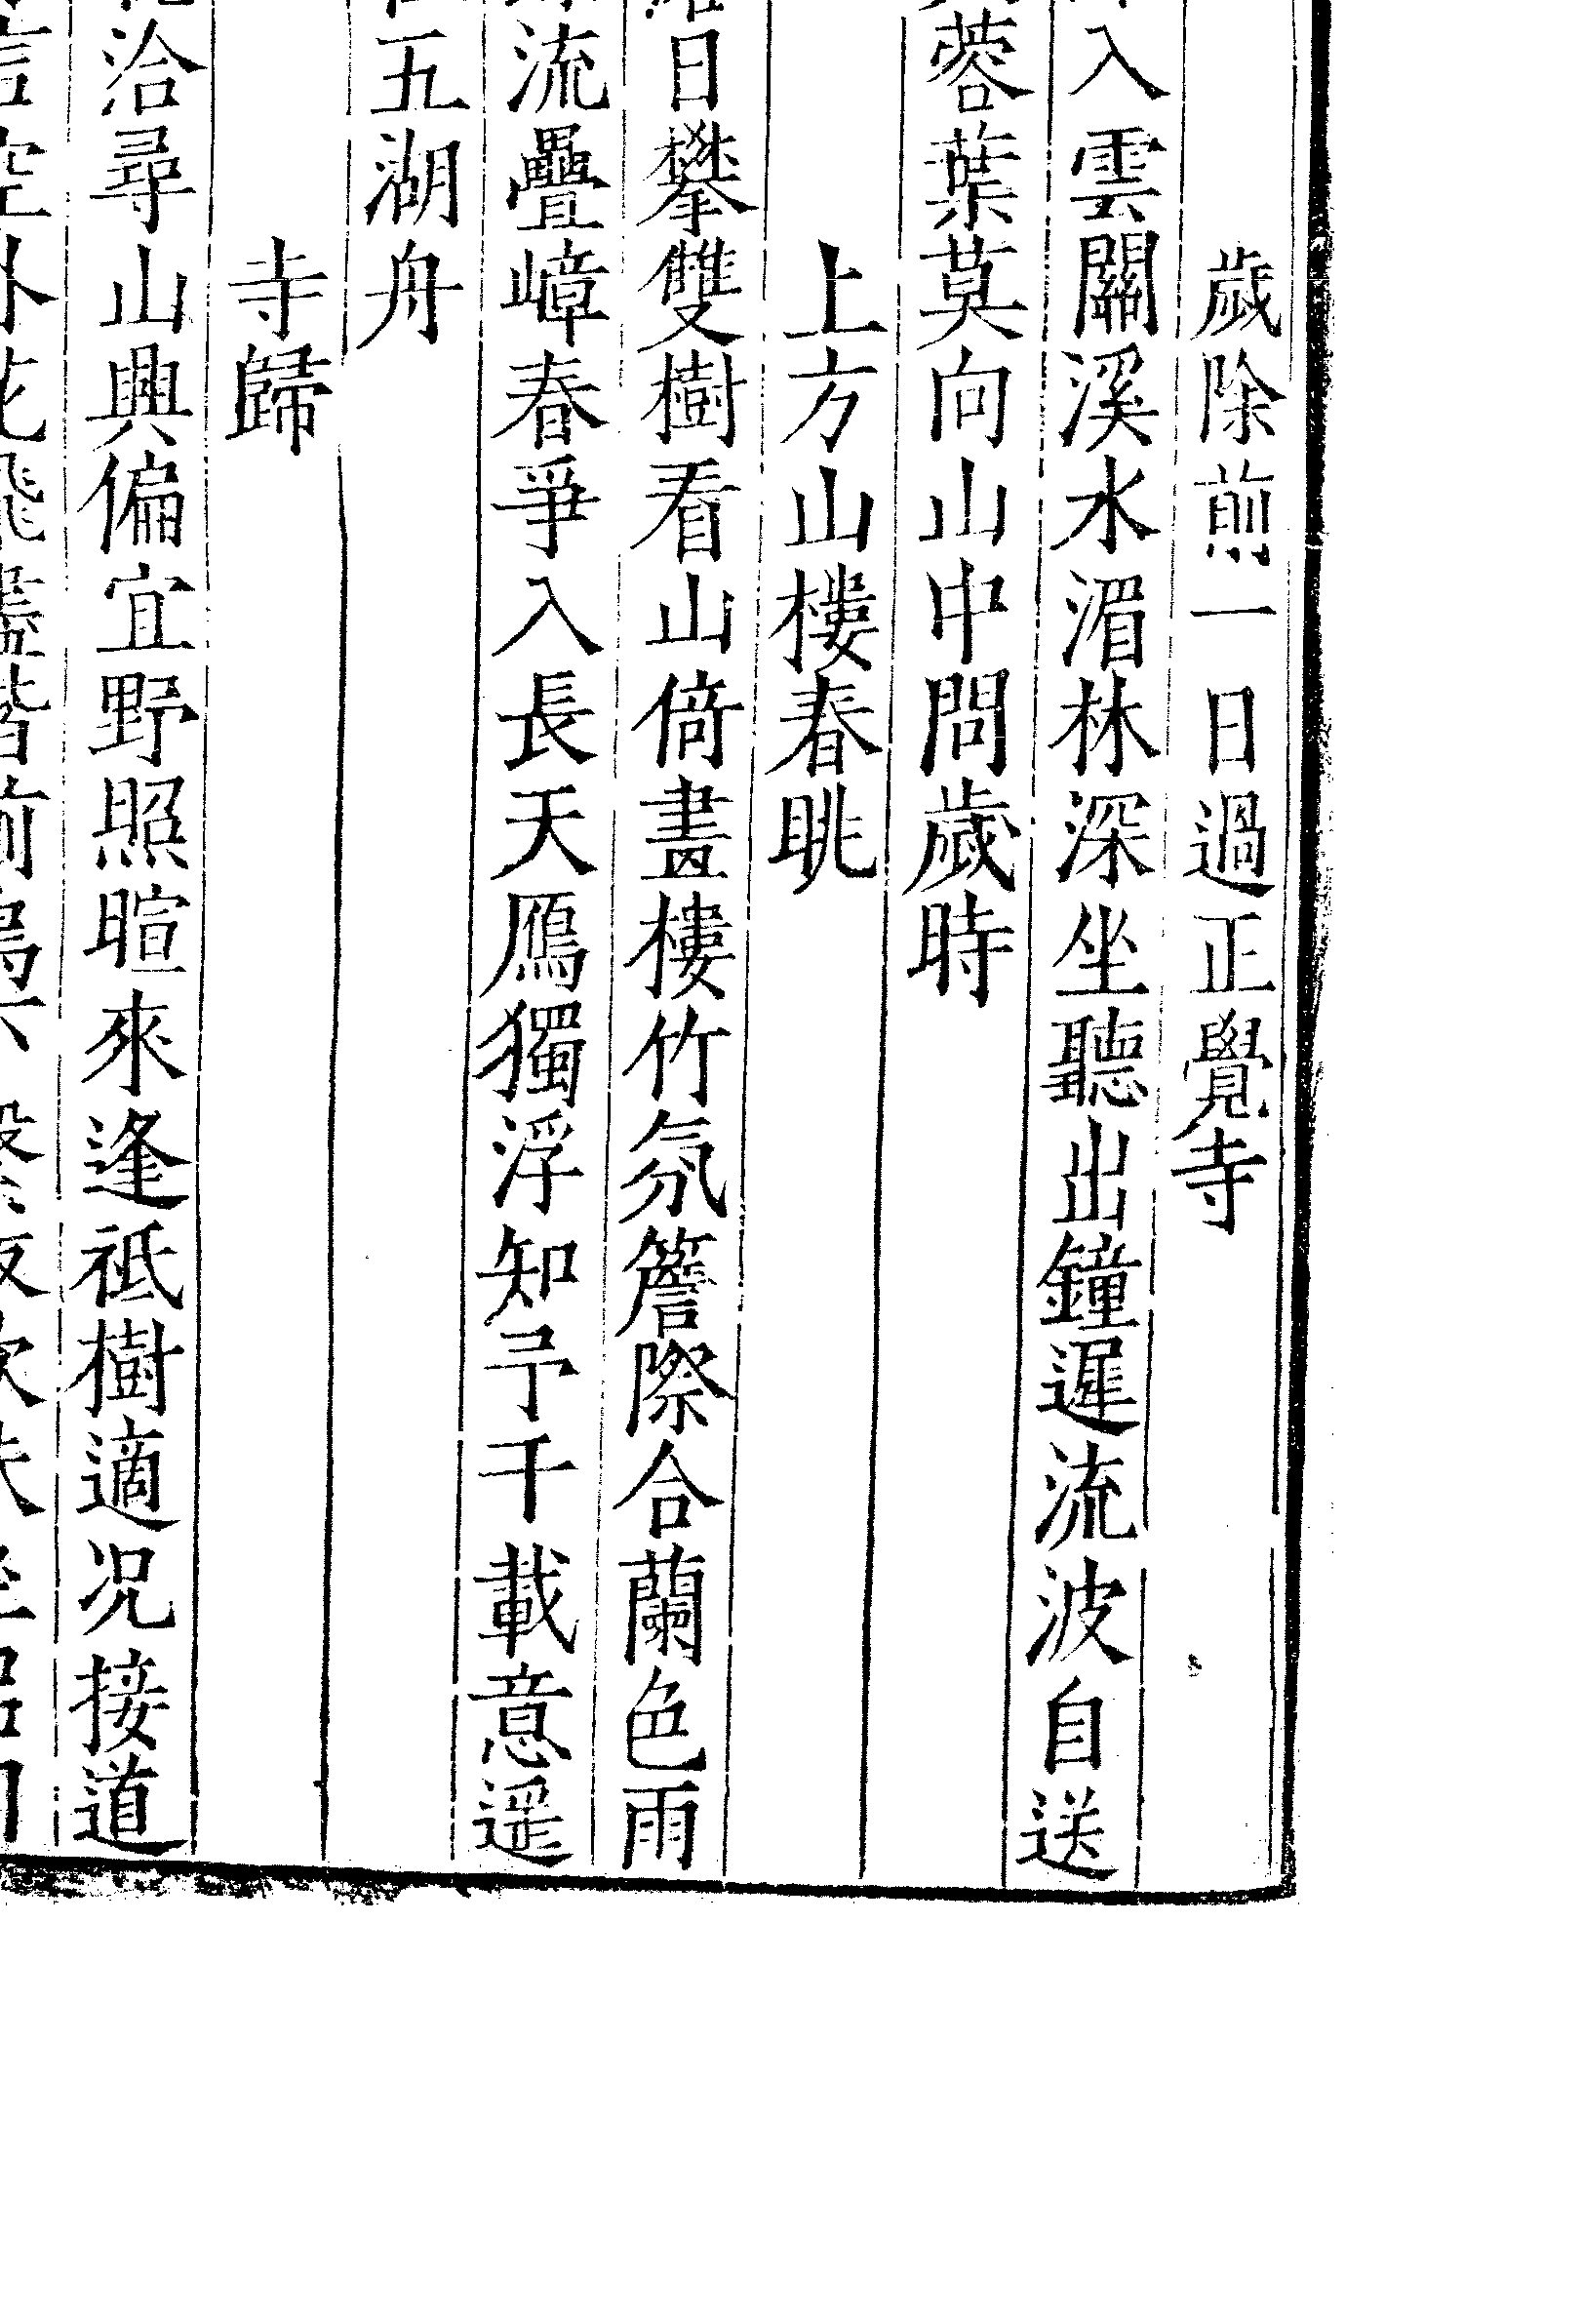 歲除煎一日過正覺寺
入雲關溪水湄林深坐聽出鐘遲流波自送
蓉葉莫向山中問歲時
上方山樓春眺
日攀雙樹看山倚畫樓竹氛簷際合蘭色雨
流疊嶂春爭入長天鴈獨浮知予千載意遥
五湖舟
寺歸
洽尋山興偏宜野照暄來逢祇樹適况接道
言空外花飛盡階前鳥下